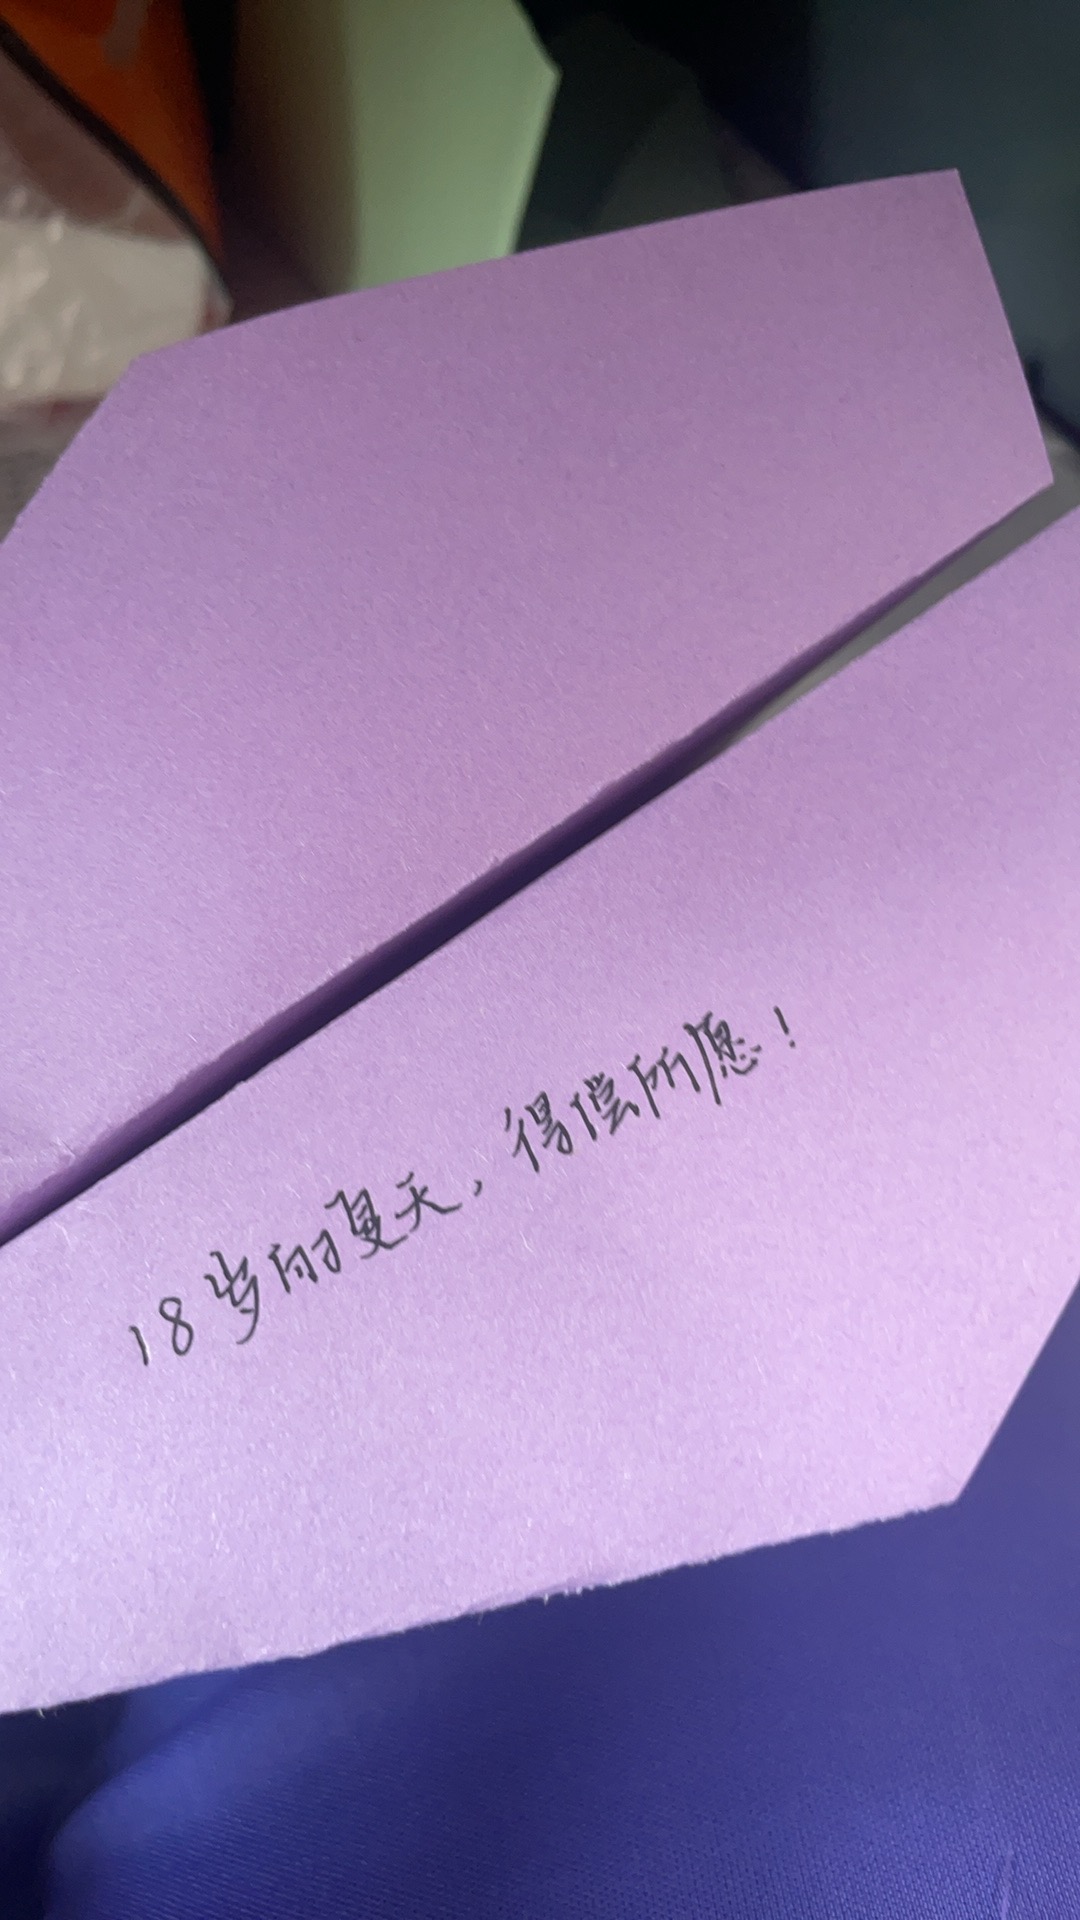 18岁的夏天，得偿所愿！